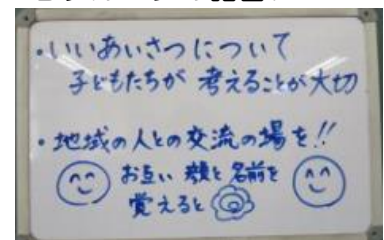 ・いいあいさつについて
子どもたちが 考えることが大切
・地域の人との交流の場を!!
お互い 顔と名前を
覚えると